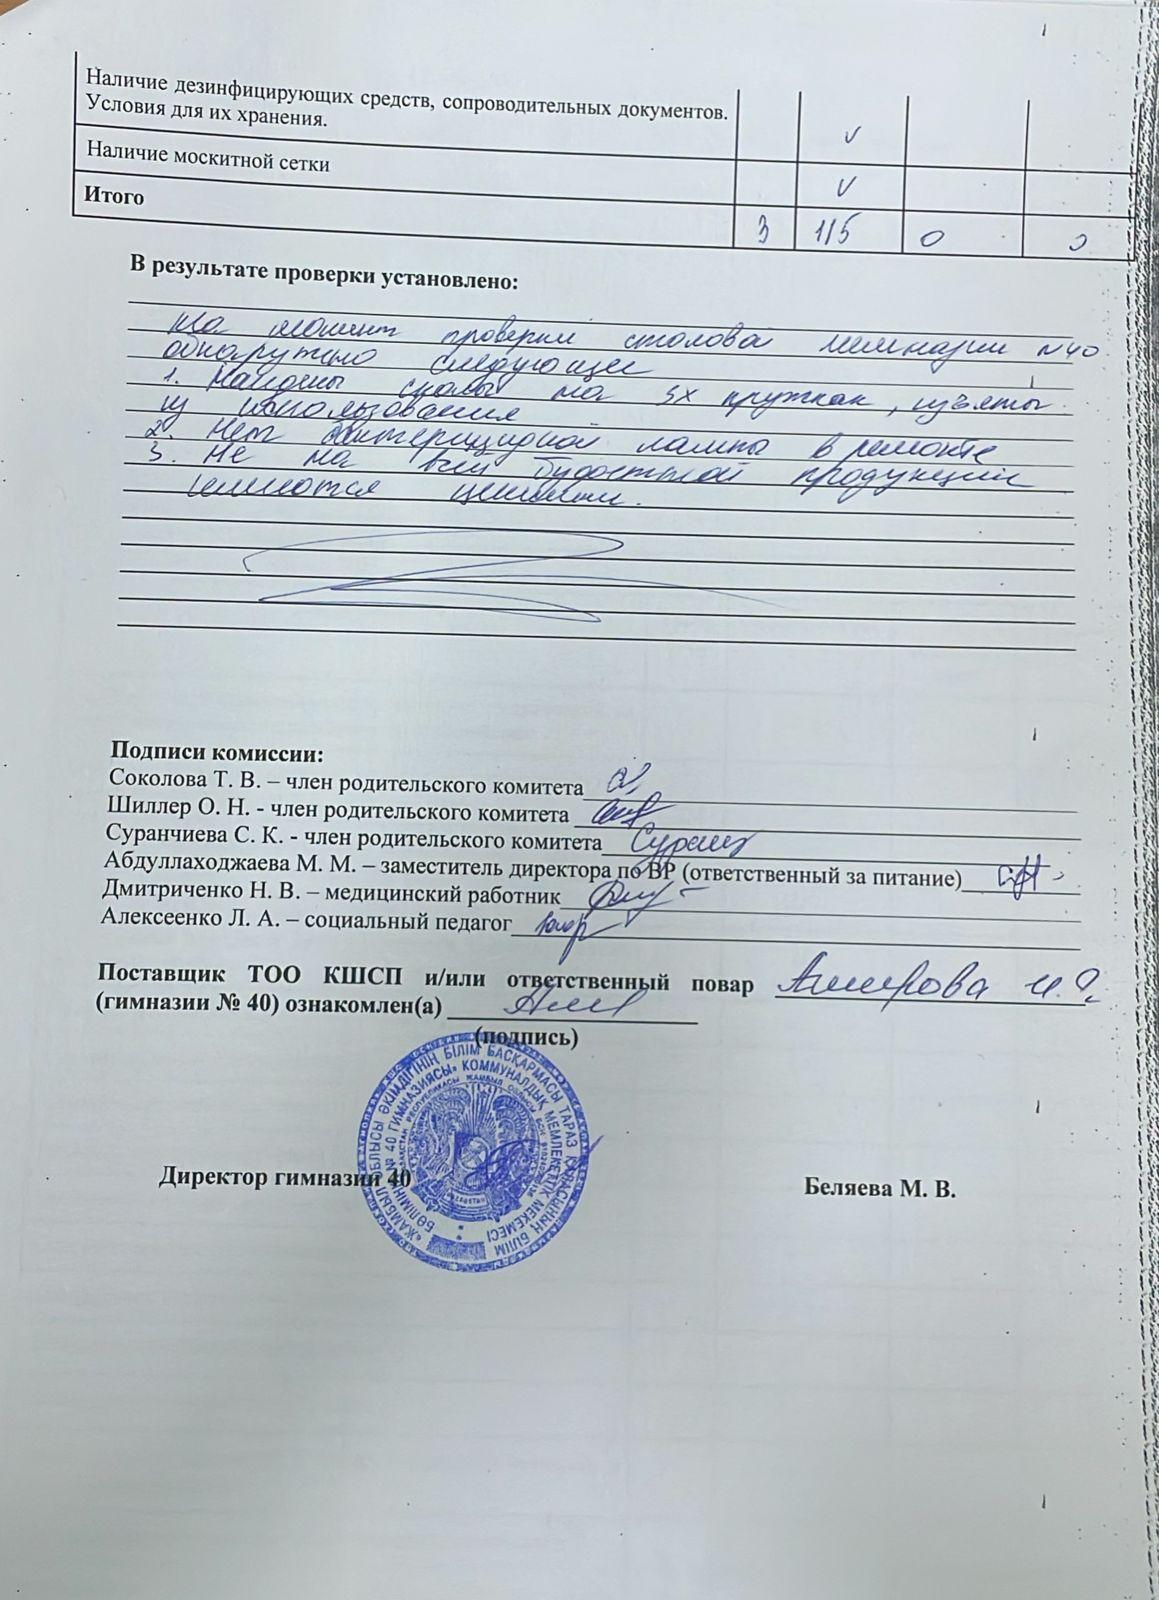 Наличие дезинфицирующих средств, сопроводительных документов.
Условия для их хранения. v
Наличие москитной сетки v
Итого 3 115 0 0
В результате проверки установлено:
На момент проверки столовой гимназии №40
обнаружено следующее
1. Найдены сколы на 3х кружках, изъяты
из использования
2. Нет бактерицидной лампы в ремонте
3. Не на всей продукции
имеются ценники.
Подписи комиссии:
Соколова Т. В. – член родительского комитета
Шиллер О. Н. - член родительского комитета
Суранчиева С. К. - член родительского комитета
Абдуллаходжаева М. М. – заместитель директора по ВР (ответственный за питание)
Дмитриченко Н. В. – медицинский работник
Алексеенко Л. А. – социальный педагог
Поставщик ТОО КШСП и/или ответственный повар Амирова И.
(гимназии № 40) ознакомлен(а)
(подпись)
«ЖАМБЫЛ ОБЛЫСЫ ӘКІМДІГІНІҢ БІЛІМ БАСҚАРМАСЫ ТАРАЗ ҚАЛАСЫНЫҢ БІЛІМ
БӨЛІМІНІҢ № 40 ГИМНАЗИЯСЫ» КОММУНАЛДЫҚ МЕМЛЕКЕТТІК МЕКЕМЕСІ
Директор гимназии 40 Беляева М. В.